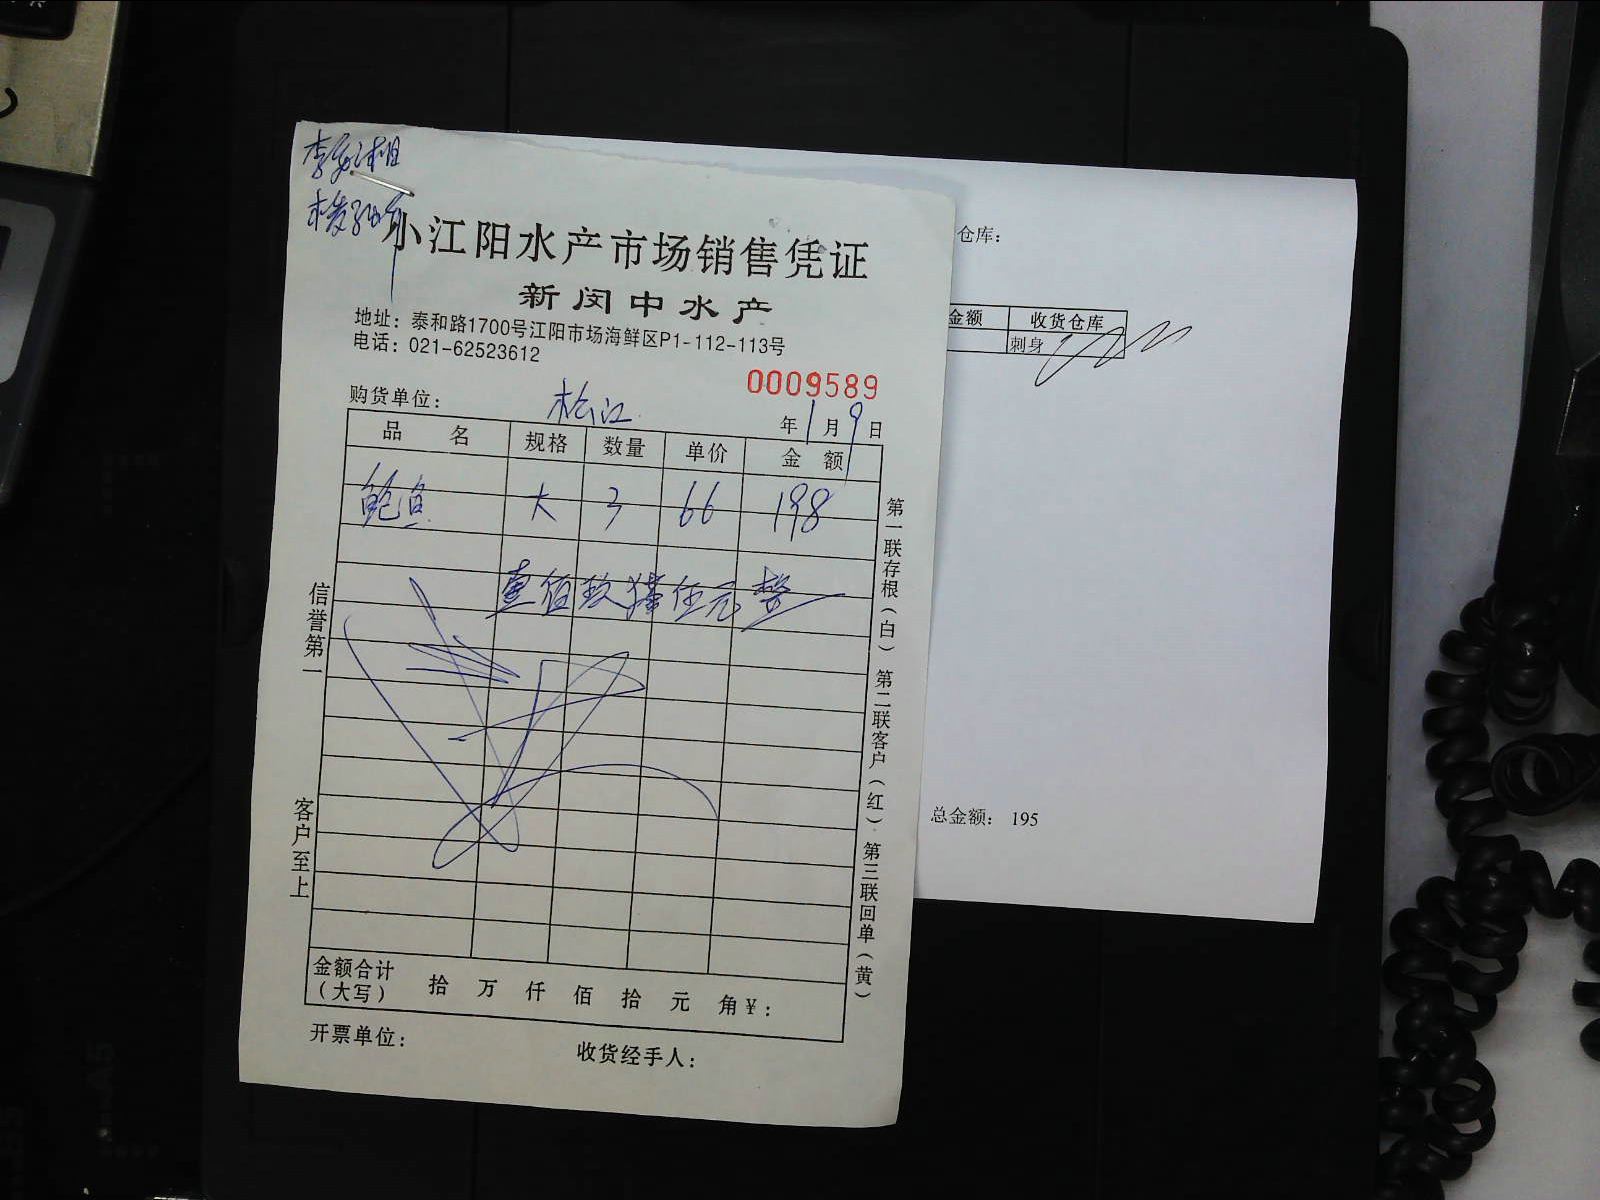 小江阳水产市场销售凭证
新闵中水产
地址：泰和路1700号江阳市场海鲜区P1-112-113号
电话：021-62523612
0009589
购货单位： 松江 年 1 月 9 日
品 名 规格 数量 单价 金 额
鲍鱼 大 3 66 198
壹佰玖拾伍元整
信誉第一
客户至上
第一联存根（白） 第二联客户（红） 第三联回单（黄）
金额合计（大写） 拾 万 仟 佰 拾 元 角 ¥：
开票单位： 收货经手人：
仓库：
金额 收货仓库
刺身
总金额： 195